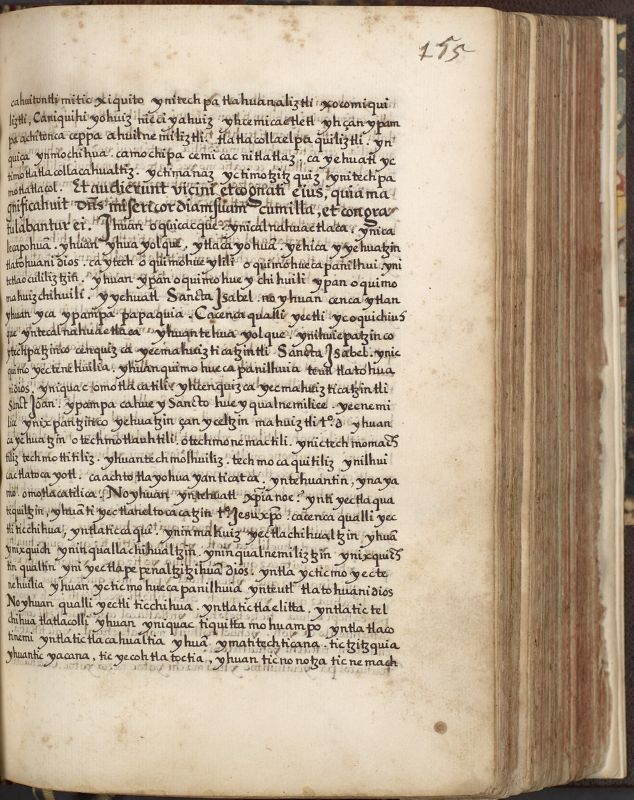 155
cahuitontli mitic xiquito ynitech pa tlahuanaliztli xocomiqui
liztli, Caniquihi yohuiz nieci yahuiz yhcemicaetletl yhçan ypam
pa achitonca ceppa ahuilnemiliztli. tlatlacollaelpaquiliztli. yn
quiça ynmochihua. camochipa cemicac nitlatlaz, ca yehuatl yc
timotlatlacollacahualtiz. yctimanaz yctimotzitzquiz ynitech pa
motlatlacol. Et audierunt vicini et cognati eius, quia ma
gnificahuit dñs misericordiam suam cum illa, et congra
tulabantur ei. Jhuan oquicacque ynicalnahuac tlaca. ynica
lecapohuã. yhuan yhuayolque, ytlacayohuã. yehica yyehuatzin
tlatohuani dios. caytech oquimohueylili oquimohuecapanilhui. yni
tetlaoculiliztzin. yhuan ypan oquimohueychihuili ypan oquimo
mahuizchihuili. yyehuatl Sancta Jsabel. noyhuan cenca ytlan
yhuan yca ypampa papaquia. Cacenca qualli yectli ycoquichiuh
que yntecalnahuac tlaca yhuan tehuayolque. ynihuicpatzinco
ytechpatzinco cenquizca yecmahuizticatzintli Sancta Jsabel. ynic
quimoyectenehuilia. yhuan quimohuecapanilhuia teutl tlatohua
ni dios. yniquac omotlacatili yhcenquizca yecmahuizticatzintli
Sanct Joan. ypampa cahuey Sancto huey qualnemilice. yecnemi
lice ynixpantzinco yehuatzin çan yceltzin mahuiztli tº. d yhuan
ca yehuatzin otechmotlauhtili. otechmonemactili. ynictechmomach
tiliz techmottitiliz. yhuan techmolhuiliz. techmocaquitiliz ynilhui
cactlatocayotl. caachto tlayohuayanticatca. yntehuantin, ynaya
mo omotlacatilica. Noyhuan yntehuatl xp̃ianoe. ynti yectlaqua
tiquiltzin, yhuã ti yectlaneltocacatzin tº Jesu xp̃o. cacenca qualli yec
tli ticchihua, yntlaticaqui. yninmahuiz yectlachihualtzin yhuã
ynixquich ynin quallachihualtzin. ynin qualnemiliztzin ynixquich
tin qualtin yni yectlapepenaltzitzihuã dios. yntla yctic moyecte
nehuilia yhuan ycticmohuecapanilhuia ynteutl tlatohuani dios
Noyhuan qualli yectli ticchihua. yntlatictlaelitta. yntlatictel
chihua tlatlacolli yhuan yniquac tiquitta mohuampo yntlatlaco
tinemi yntlatictlacahualtia yhuã ymatitechticana. tictzitzquia
yhuantic yacana, ticyecohtlatoctia, yhuan ticnonotza ticnemach